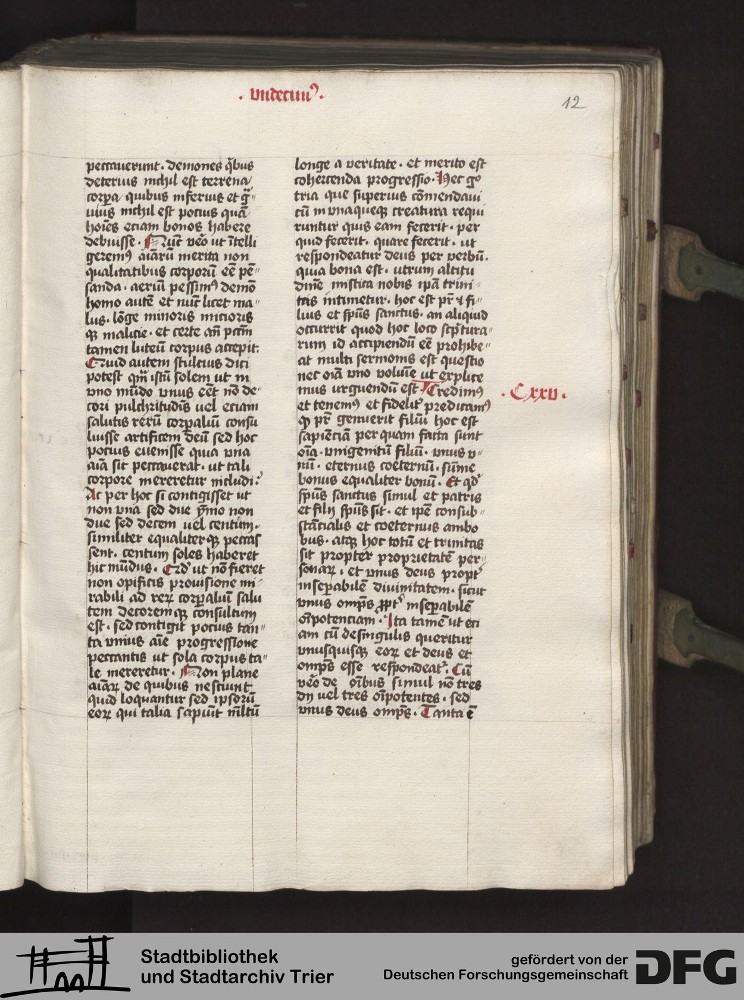 · vndecimꝰ ·
12
peccauerunt · demones q̄bus
deterius nichil est terrena
corp̄a · quibus inferius et g̃-
uius nichil est pocius quā
hoīes eciam bonos habere
debuisse · Nūc v̄o ut ītelli
geremꝰ aīarū merita non
qualitatibus corporū eē pē-
sanda · aeriū pessimꝰ demō
homo autē et nūc licet ma-
lus · lōge minoris micioris
qꝫ malicie · et certe an̄ pctm̄
tamen luteū corpus accepit ·
Quid autem stulcius dici
potest qm̄ istū solem ut in
vno mūdo vnus eēt nō de-
cori pulchritudīs vel eciam
salutis rerū corpaliū consu
luisse artificem deū sed hoc
pocius euenisse quia vna
aīa sic peccauerat · ut tali
corpore mereretur includi ·
Ac per hoc si contigisset ut
non vna sed due ȳmo non
due sed decem uel centum ·
similiter equaliterqꝫ peccas
sent · centum soles haberet
hic mūdus · Qrd̓ ut nō fieret
non opificis prouisione mi-
rabili ad reꝝ corpaliū salu
tem decoremqꝫ consultum
est · sed contigit pocius tan-
ta vnius aīe progressione
peccantis ut sola corpus ta-
le mereretur · Non plane
aīaꝝ de quibus nesciunt
quid loquantur sed ipsorū
eoꝝ qui talia sapiūt m̄ltū
longe a veritate · et merito est
cohercenda progressio · Hec ḡo
tria que superius cōmendaui
cū in vnaqueqꝫ creatura requi
runtur quis eam fecerit · per
quid fecerit · quare fecerit · ut
respondeatur deus per verbū ·
quia bona est · utrum altitu
dine mistica nobis ip̄a trini-
tas intimetur · hoc est pr̄ ⁊ fi-
lius et sp̄us sanctus · an aliquid
occurrit quod hoc loco sc̄ptura-
rum id accipiendū eē prohibe-
at multi sermonis est questio
nec oīa vno volūīe ut explice
mus vrguendū est · Credimꝰ
· Cxxv ·
et tenemꝰ et fidelit̓ predicamꝰ
qꝫ pr̄ genuerit filiū hoc est
sapiēciā per quam facta sunt
oīa · vnigenitū filiū · vnus v-
nū · eternus coeternū · sūme
bonus equaliter bonū · Et qd̓
sp̄us sanctus simul et patris
et filij sp̄us sit · et ip̄e consub-
stācialis et coeternus ambo
bus · atqꝫ hoc totū et trinitas
sit propter proprietatē per-
sonaꝝ · et vnus deus propt̓
inseparabilē diuinitatem · sicut
vnus omp̄s ꝓpt̓ inseparabilē
oīpotenciam · Ita tamē ut eci
am cū de singulis queritur
vnusquisqꝫ eoꝝ et deus et
omp̄s esse respondeat̓ · Cū
v̄o de oībus simul nō tres
dij vel tres oīpotentes · sed
vnus deus omp̄s · Tanta ē
Stadtbibliothek
und Stadtarchiv Trier
gefördert von der
Deutschen Forschungsgemeinschaft
DFG